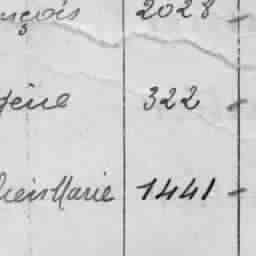 nçois 2028 -
gène 322 -
Marie 1441 -